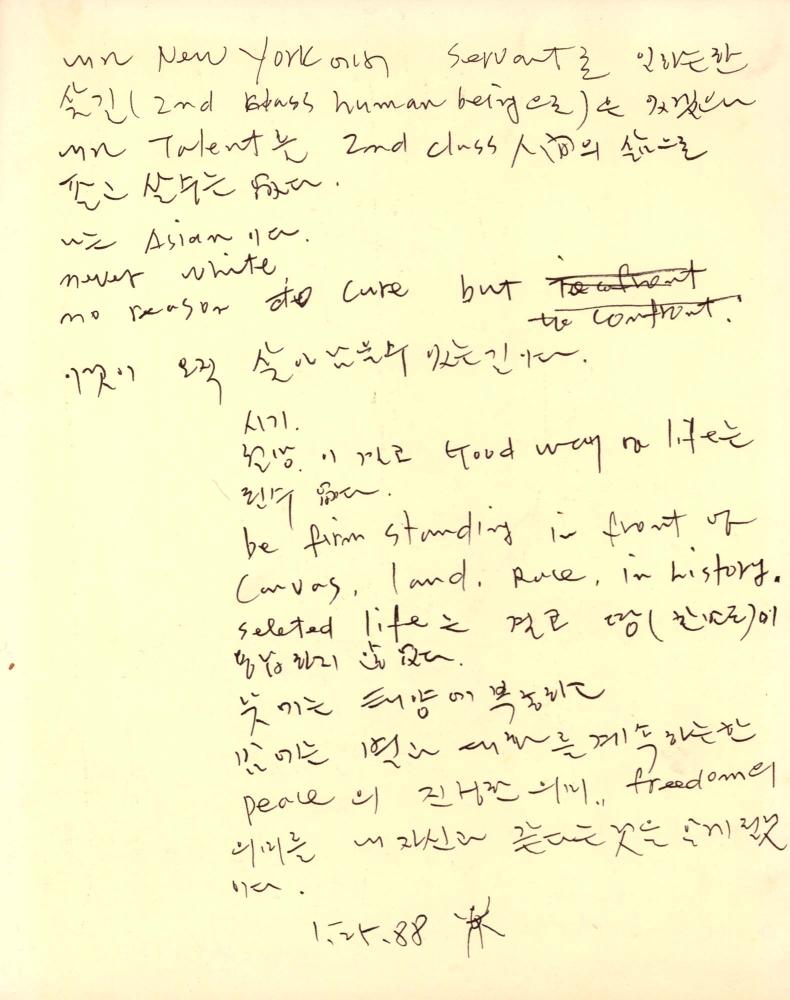 내가 New York에서 servant로 일하는한
살길(2nd class human being으로)은 있겠으나
내가 Talent를 2nd class 人間의 삶으로
팔고 살수는 없다.
나는 Asian이다.
never white,
no reason to cure but to confront
to confront.
이것이 오직 살아남을수 있는길이다.
시기.
절망이 결코 Good way to life는
될수 없다.
be firm standing in front of
Canvas, land, Race, in history.
seleted life는 결코 땅(한으로)이
않았다.
낮에는 태양에 복종하고
밤에는 별과 대화를 계속하는한
peace의 진정한 의미, freedom의
의미를 내 자신과 같다는것을 알게 될것
이다.
1.25.88